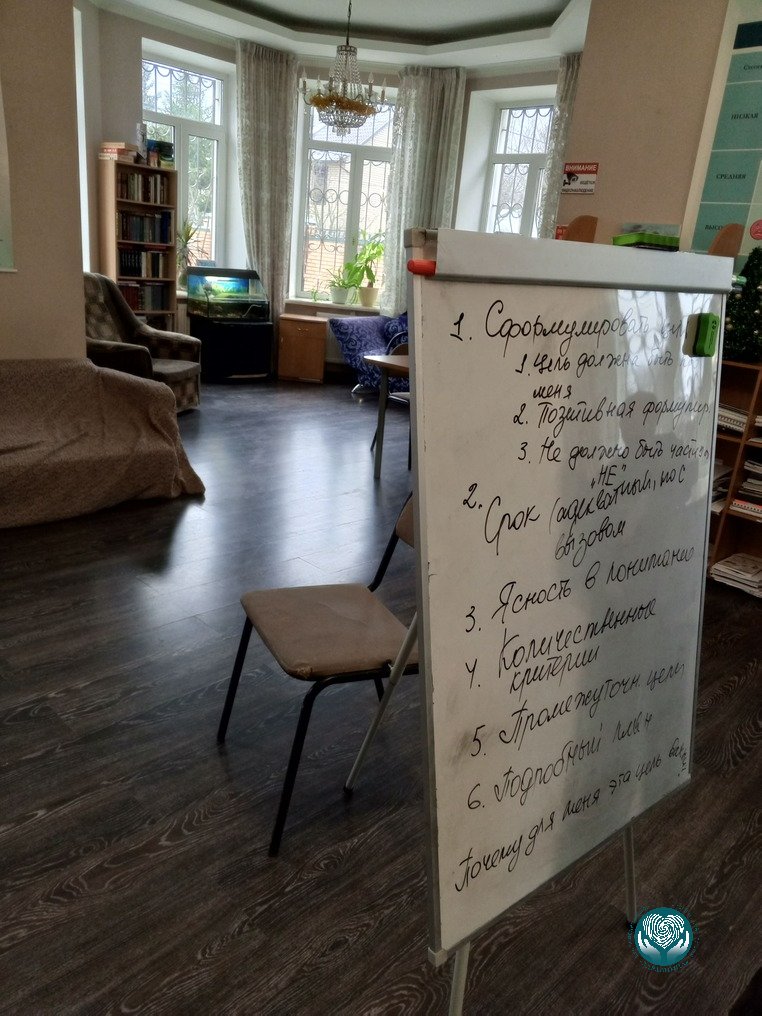 ВНИМАНИЕ
НИЗКАЯ
СРЕДНЯЯ
1. Сформулировать
1. Цель должна быть
меня
2. Позитивная формулир
3. Не должно быть
"НЕ"
2. Срок (адекватный, но с
вызовом
3. Ясность в понимании
4. Количественные
критерии
5. Промежуточн цели
6. Подробный план
Почему для меня эта цель